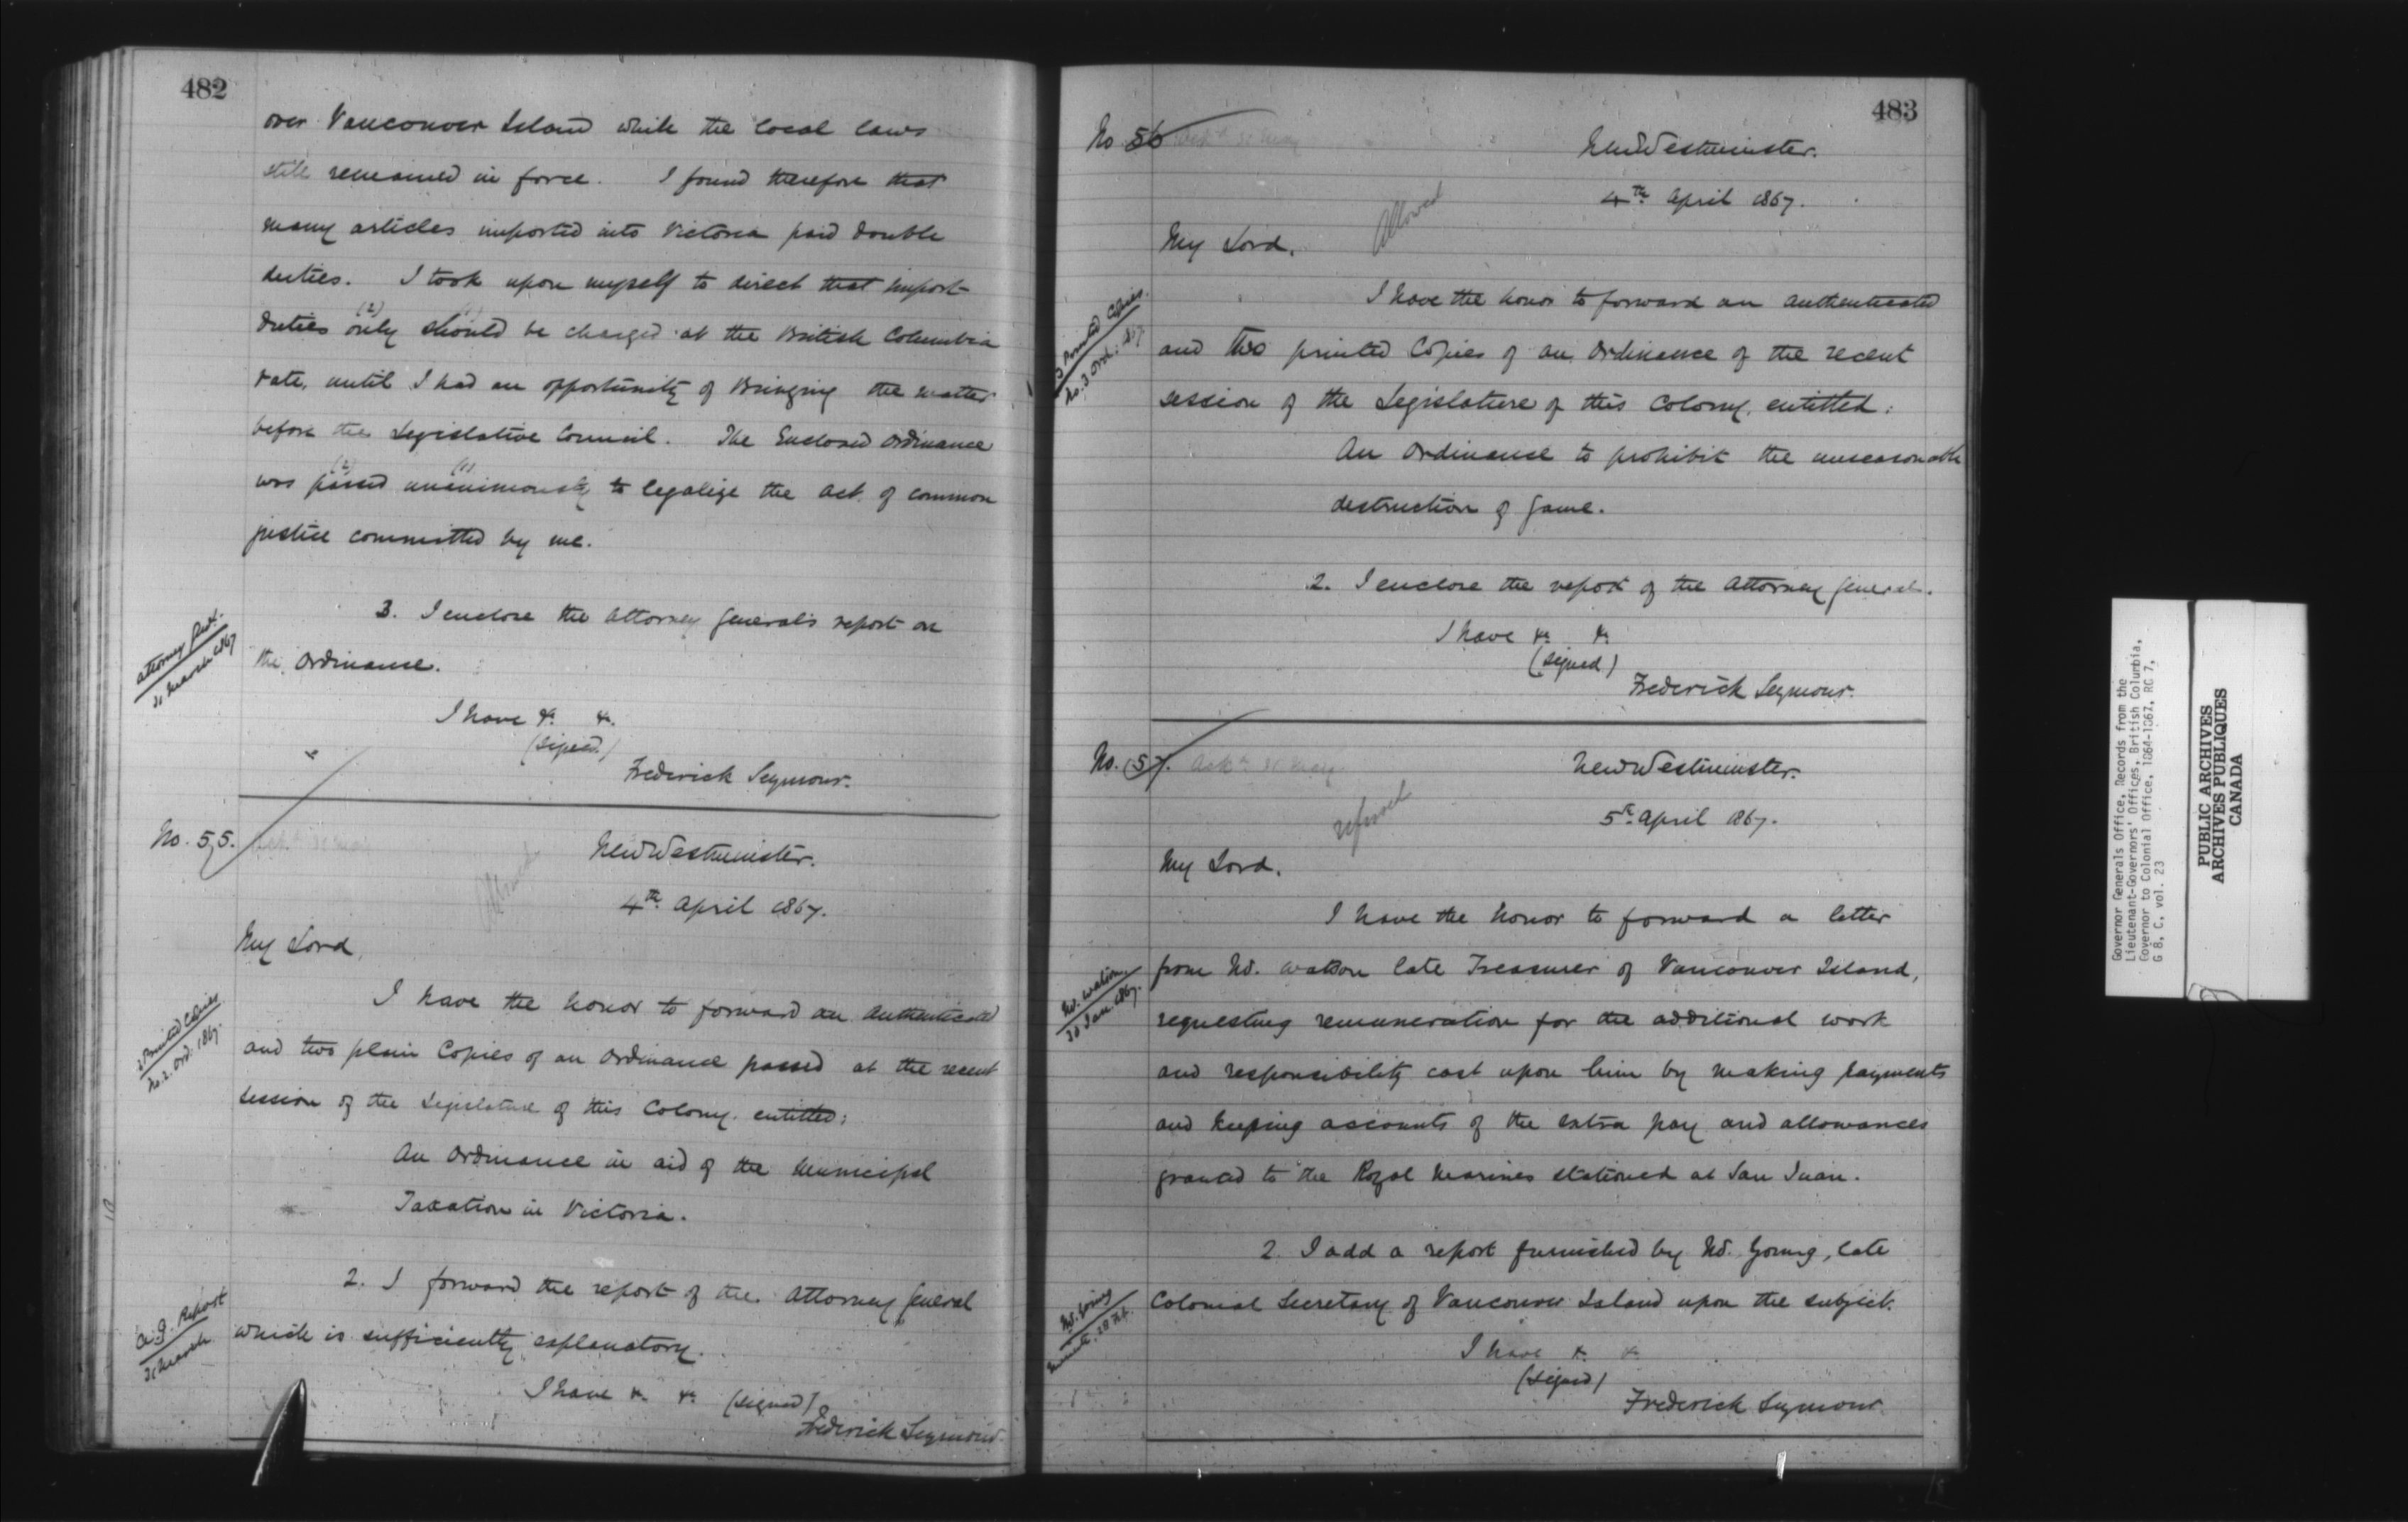 482
over Vancouver Island while the local laws
still remained in force. I found therefore that
many articles imported into Victoria paid double
duties. I took upon myself to direct that import
(2) (1)
duties only should be charged at the British Columbia
rate, until I had an opportunity of Bringing the matter
before the Legislative Council. The Enclosed Ordinance
(2) (1)
was passed unanimously to legalize the act of common
justice committed by me.
3. I enclose the Attorney General's report on
the Ordinance.
31 March 1867
I have &c. &c.
(signed)
Frederick Seymour.
No. 55.
New Westminster.
4th April 1867.
My Lord,
I have the honor to forward an authenticated
2 Printed Copies
No. 2. Ord. 1867.
and two plain Copies of an Ordinance passed at the recent
session of the Legislature of this Colony entitled:
An Ordinance in aid of the Municipal
Taxation in Victoria.
2. I forward the report of the Attorney General
A.G. Report
31 March
which is sufficiently explanatory.
I have &c. &c. (signed)
Frederick Seymour.
483
No 56
New Westminster.
4th April 1867.
Allowed
My Lord,
I have the honor to forward an authenticated
Printed Copies
No. 3 Ord. 1867
and two printed Copies of an Ordinance of the recent
session of the Legislature of this Colony entitled:
An Ordinance to prohibit the unseasonable
destruction of Game.
2. I enclose the report of the Attorney General.
I have &c. &c.
(signed)
Frederick Seymour.
No. 57. Ackd 31 May
New Westminster.
5th April 1867.
refused
My Lord.
I have the honor to forward a letter
Mr. Watson
30 Jan. 1867.
from Mr. Watson late Treasurer of Vancouver Island,
requesting remuneration for the additional work
and responsibility cast upon him by making payments
and keeping accounts of the extra pay and allowances
granted to the Royal Marines stationed at San Juan.
2. I add a report furnished by Mr. Young, late
Mr. Young
Colonial Secretary of Vancouver Island upon the subject.
I have &c. &c.
(signed)
Frederick Seymour.
Governor Generals Office, Records from the
Lieutenant-Governors' Offices, British Columbia,
Governor to Colonial Office, 1864-1867, RG 7,
G 8, C, vol. 23
PUBLIC ARCHIVES
ARCHIVES PUBLIQUES
CANADA